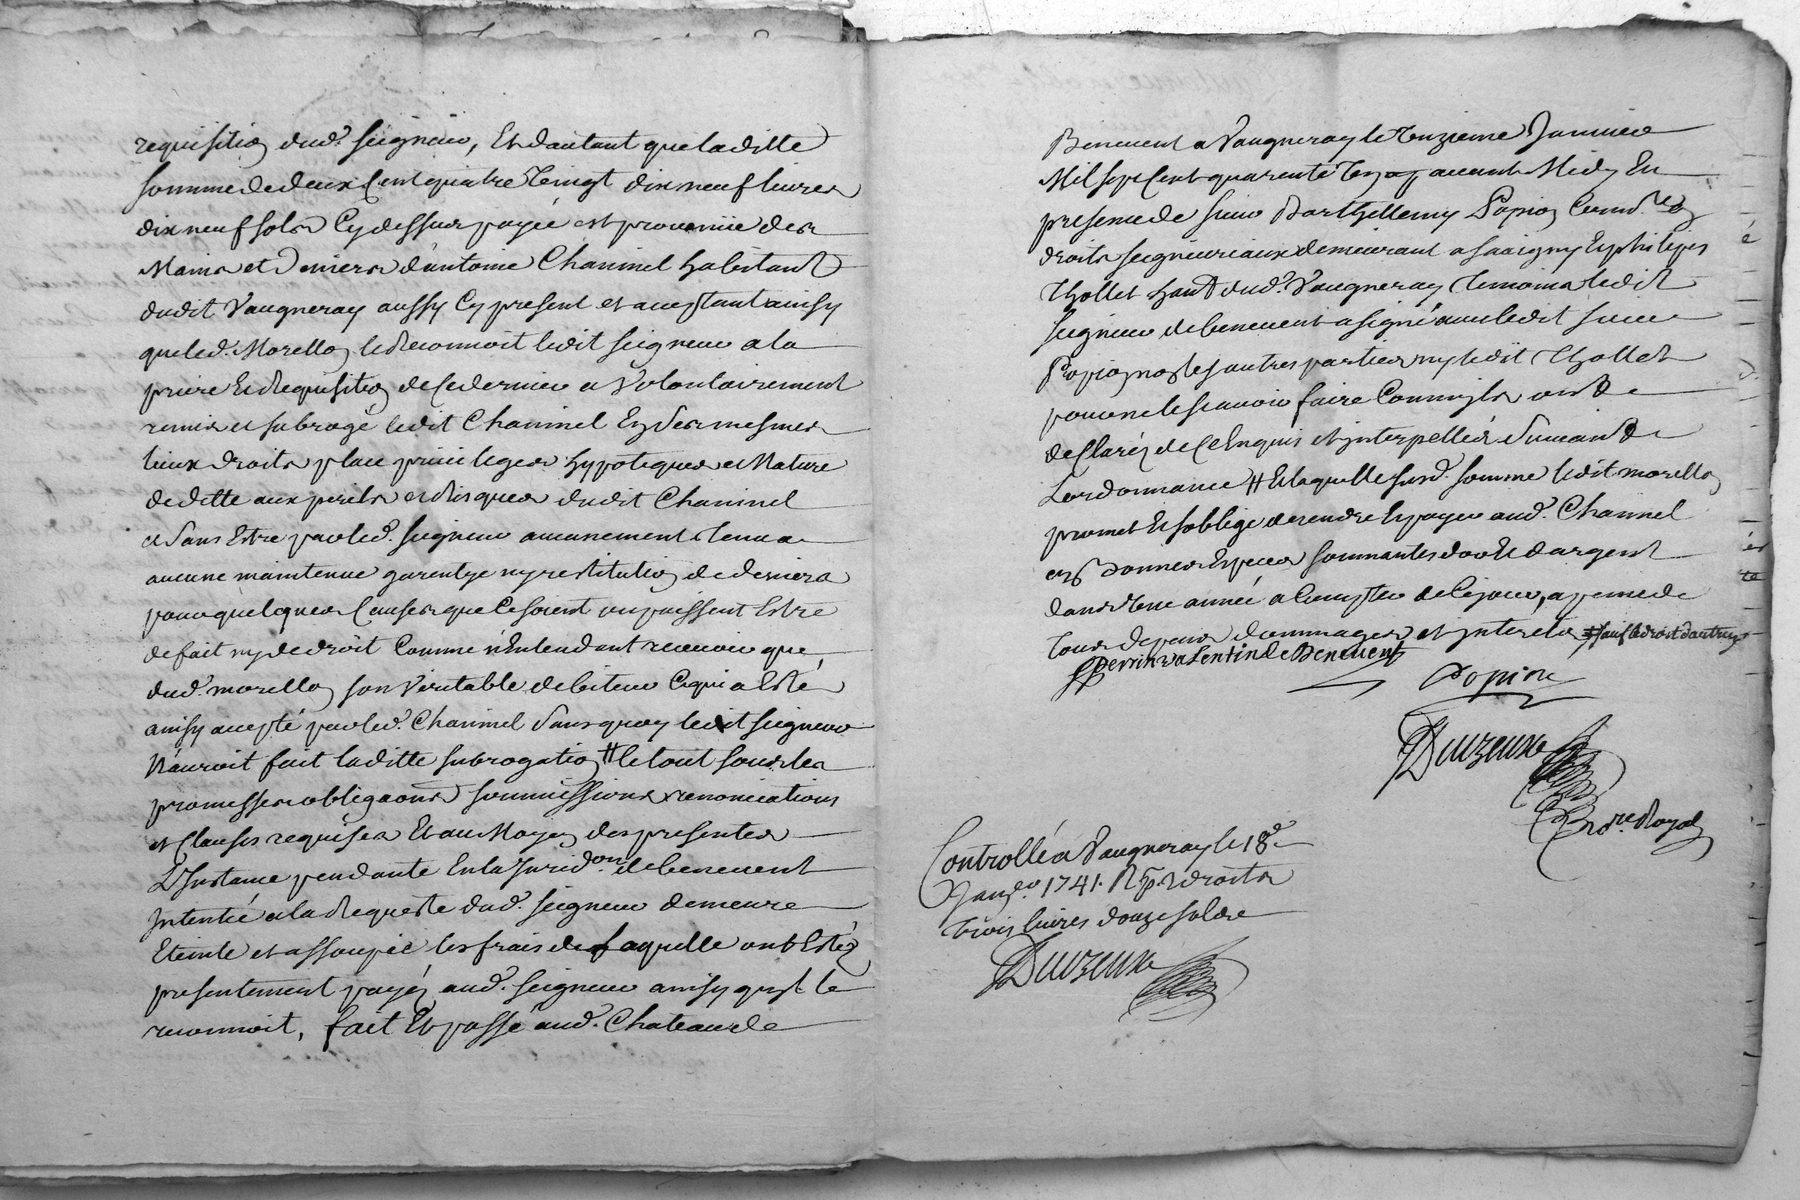 requisition dud. seigneur, Et dautant que laditte
somme de deux Cent quatre Vingt dix neuf livres
dix neuf sols Cy dessus payée est provenüe des
Mains et deniers d'antoine Chaninel habitant
dudit Vaugneray aussy Cy present et acceptant ainsy
que led. Morellon le Reconnoit ledit seigneur a la
priere Et Requisition de Ce dernier a Volontairement
remis et subrogé ledit Chaninel En ses mesmes
lieux droits place privileges hypoteques et Nature
de dette aux perils et Risques dudit Chaninel
et sans Estre par led. seigneur aucunement Tenu a
aucune maintenue garentye ny restitution de deniers
pour quelques Causes que Ce soient ou puissent Estre
de fait ny de droit Comme n'Entendant recevoir que
dud. morellon son Veritable debiteur Ce qui a Esté
ainsy accepté par led. Chaninel sans quoy ledit seigneur
N'auroit fait laditte subrogation # le tout sous les
promesses obligaons soumissions renonciations
et Clauses requises Et au Moyen des presentes
L'Instance pendante En la Juridon. de benevent
Intentée a la Requeste dud. seigneur demeure
Eteinte et assoupie les frais de laquelle ont Estéz
presentement payéz aud. seigneur ainsy qu'il le
reconnoit, fait Et passé aud. Chateau de
Benevent a Vaugneray le Onzieme Janvier
Mil sept Cent quarente Un avant Midy En
presence de sieur Barthellemy Popion Commre. En
droits seigneuriaux demeurant a savigny Et philipes
Thollet habt. dud. Vaugneray Temoins ledit
seigneur de benevent a signé avec ledit sieur
Popion non les autres parties ny ledit Thollet
pour ne le scavoir faire Comm'ils ont
declaréz de Ce Enquis et interpelléz suivant
Lordonnance # Et laquelle susd. somme ledit morellon
promet Et soblige de rendre Et payer aud. Chaninel
en bonnes Especes sonnantes dor Et dargent
dans Une année a Compter de Ce jour, a peine de
tous depens dommages et interets # sauf le droit dautruy
Perrin valentin de Benevent
Popion
Duvzeune
Nore. Royal
Controllé a Vaugneray le 18e
Janer. 1741. R p. droits
trois livres douze sols
Duvzeune